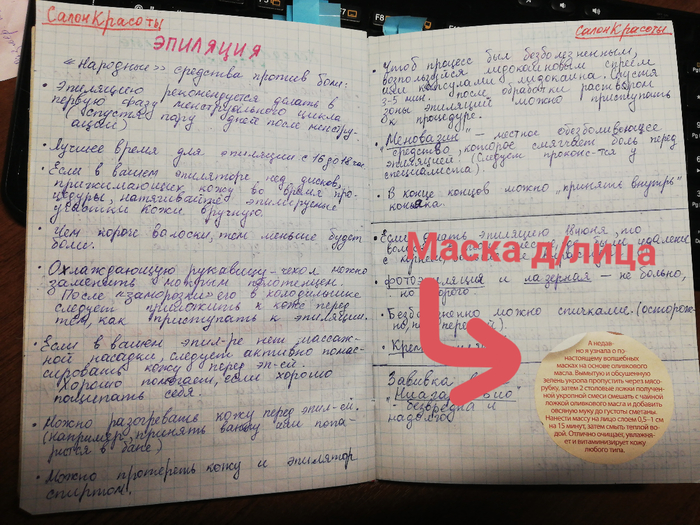 Салон Красоты
ЭПИЛЯЦИЯ
«Народные» средства против боли:
• Эпиляцию рекомендуется делать в
первую фазу менструального цикла
(спустя пару дней после менстру-
аций)
• Лучшее время для эпиляции с 16 до 18 час
• Если в вашем эпиляторе нед дисков,
прижимающих кожу во время про-
цедуры, натягивайте эпилируемые
участки кожи вручную.
• Чем короче волоски, тем меньше будет
боли.
• Охлаждающую рукавицу-чехол можно
заменить мокрым полотенцем.
После «заморозки» его в холодильнике
следует приложить к коже перед
тем, как приступать к эпиляции.
• Если в вашем эпил-ре нет массаж-
ной насадки, следует активно помас-
сировать кожу перед эп-ей.
Хорошо помогает, если хорошо
пощипать себя.
• Можно разогревать кожу перед эпил-ей.
(например, принять ванну или попа-
риться в бане)
• Можно протереть кожу и эпилятор
спиртом.
Салон Красоты
• Чтоб процесс был безболезненным,
воспользуйся лидокаиновым спреем
или капсулами лидокаина. Спустя
3-5 мин. после обработки раствором
зоны эпиляции можно приступить
к процедуре.
• "Меновазин" - местное обезболивающее
средство, которое смягчает боль перед
эпиляцией. (Следует проконс-ся у
специалиста).
• В конце концов можно "принять внутрь"
коньяка.
• Если делать эпиляцию 18 июня, то
с
• фотоэпиляция и лазерная - не больно,
но дорого
• можно спичками. (осторож-
но, не
• Крем
Завивка
безвредна и
надолго
Маска д/лица
А недав-
но я узнала о по-
настоящему волшебных
масках на основе оливкового
масла. Вымытую и обсушенную
зелень укропа пропустить через мясо-
рубку, затем 2 столовые ложки получен-
ной укропной смеси смешать с чайной
ложкой оливкового масла и добавить
овсяную муку до густоты сметаны.
Нанести массу на лицо слоем 0,5–1 см
на 15 минут, затем смыть теплой во-
дой. Отлично очищает, увлажня-
ет и витаминизирует кожу
любого типа.